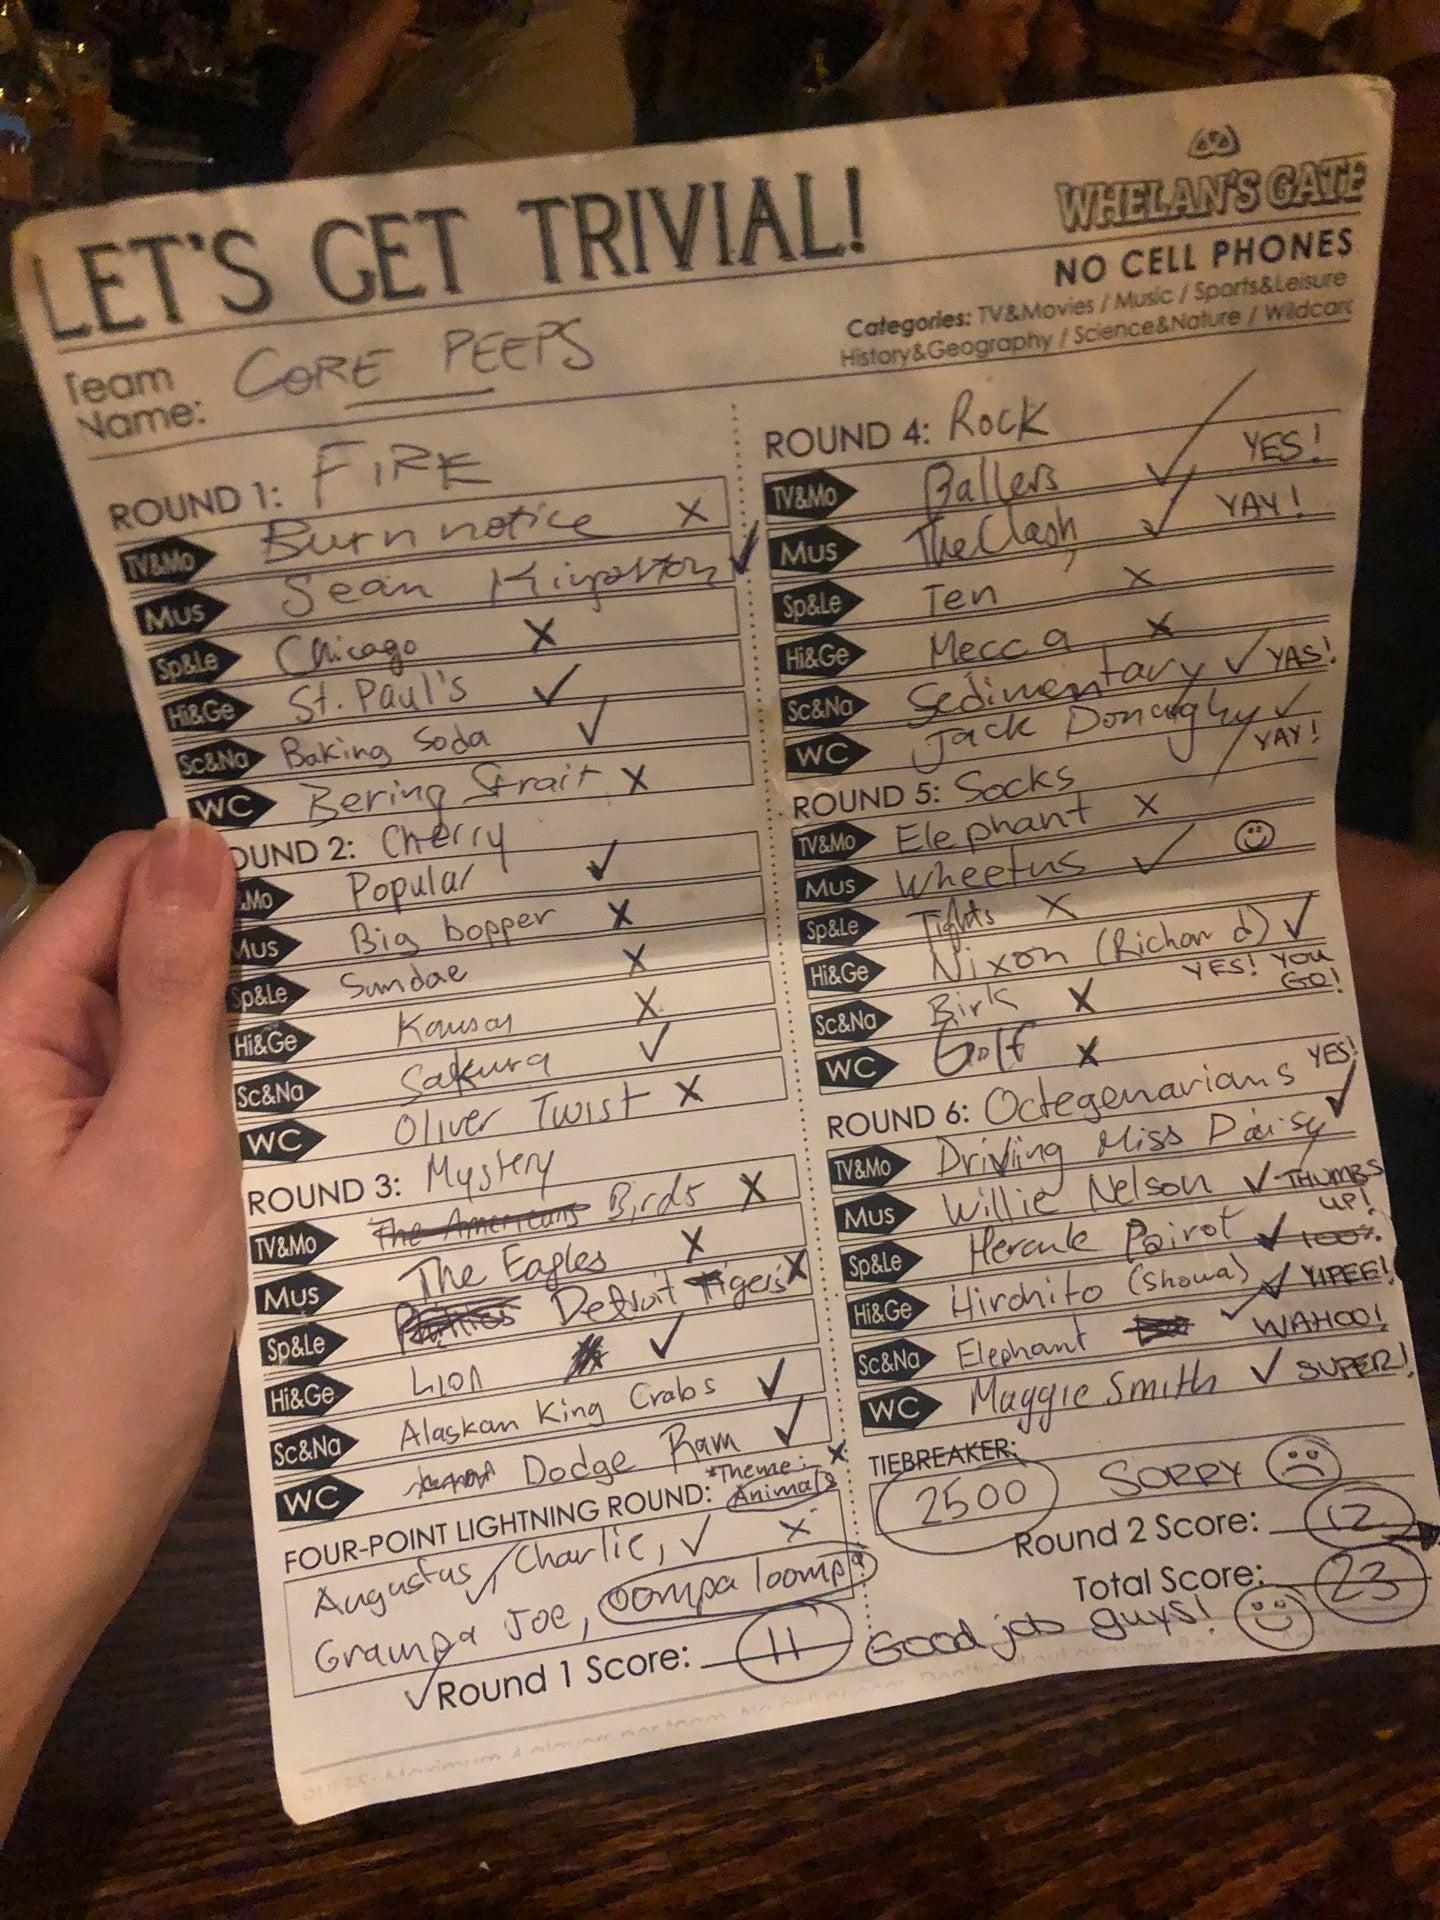 LET'S GET TRIVIAL!
WHELAN'S GATE
NO CELL PHONES
Categories: TV&Movies / Music / Sports&Leisure
History&Geography / Science&Nature / Wildcard
Team Name: CORE PEEPS
ROUND 1: FIRE
TV&Mo Burn notice X
Mus Sean Kingston ✓
Sp&Le Chicago X
Hi&Ge St. Paul's ✓
Sc&Na Baking Soda ✓
WC Bering Strait X
OUND 2: Cherry
Mo Popular ✓
Mus Big bopper X
Sp&Le Sundae X
Hi&Ge Kansas X
Sc&Na Sakura ✓
WC Oliver Twist X
ROUND 3: Mystery
TV&Mo The Americans Birds X
Mus The Eagles X
Sp&Le Detroit Tigers X
Hi&Ge Lion ✓
Sc&Na Alaskan King Crabs ✓
WC Dodge Ram ✓
*Theme: Animals X
FOUR-POINT LIGHTNING ROUND:
Augustus ✓ Charlie, ✓ X
Grampa Joe, oompa loompa
✓ Round 1 Score: 11
ROUND 4: Rock
TV&Mo Ballers ✓ YES!
Mus The Clash ✓ YAY!
Sp&Le Ten X
Hi&Ge Mecca X
Sc&Na Sedimentary ✓ YAS!
WC Jack Donaghy ✓ YAY!
ROUND 5: Socks
TV&Mo Elephant X
Mus Wheetus ✓
Sp&Le Tights X
Hi&Ge Nixon (Richard) ✓ YES! YOU GO!
Sc&Na Birk X
WC Golf X
ROUND 6: Octegenarians YES!
TV&Mo Driving Miss Daisy ✓
Mus Willie Nelson ✓ THUMBS UP!
Sp&Le Hercule Poirot ✓ 100%
Hi&Ge Hirohito (Showa) ✓ YIPEE!
Sc&Na Elephant ✓ WAHOO!
WC Maggie Smith ✓ SUPER!
TIEBREAKER:
2500 SORRY
Round 2 Score: 12
Total Score: 23
Good job guys!